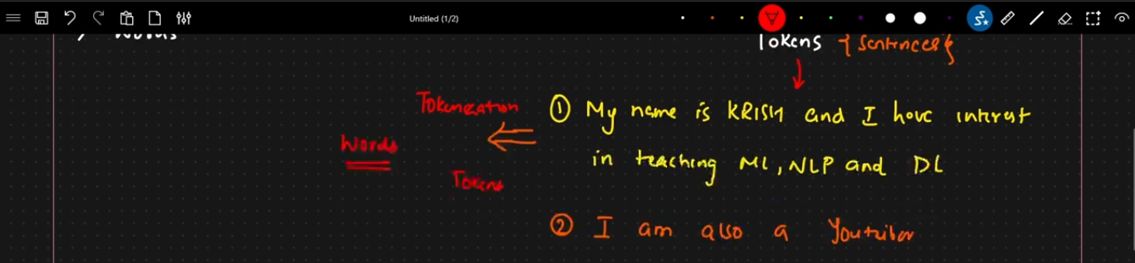 Untitled (1/2)
> Words
Tokens {Sentences}
Tokenization
① My name is KRISH and I have interest
Words
in teaching ML, NLP and DL
Tokens
② I am also a Youtuber